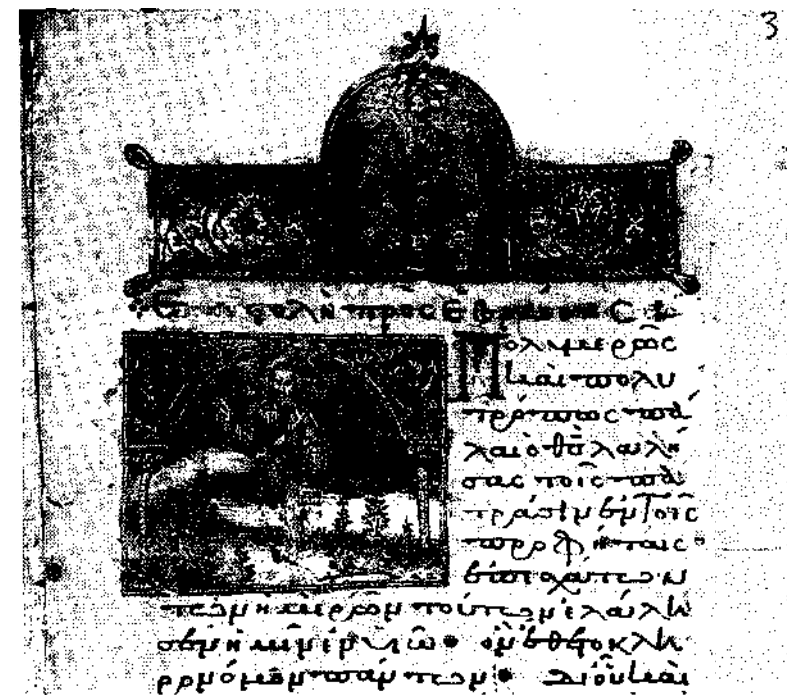 Ἐπιστολὴ πρὸς Ἑβραίους
Πολυμερῶς
καὶ πολυ
τρόπως πά
λαι ὁ θς λαλή
σας τοῖς πα
τράσιν ἐν τοῖς
προφήταις·
ἐπ' ἐσχάτων
τῶν ἡμερῶν τούτων ἐλάλη
σεν ἡμῖν ἐν υἱῶ· ὃν κλη
ρονόμον πάντων· δι' οὗ καὶ